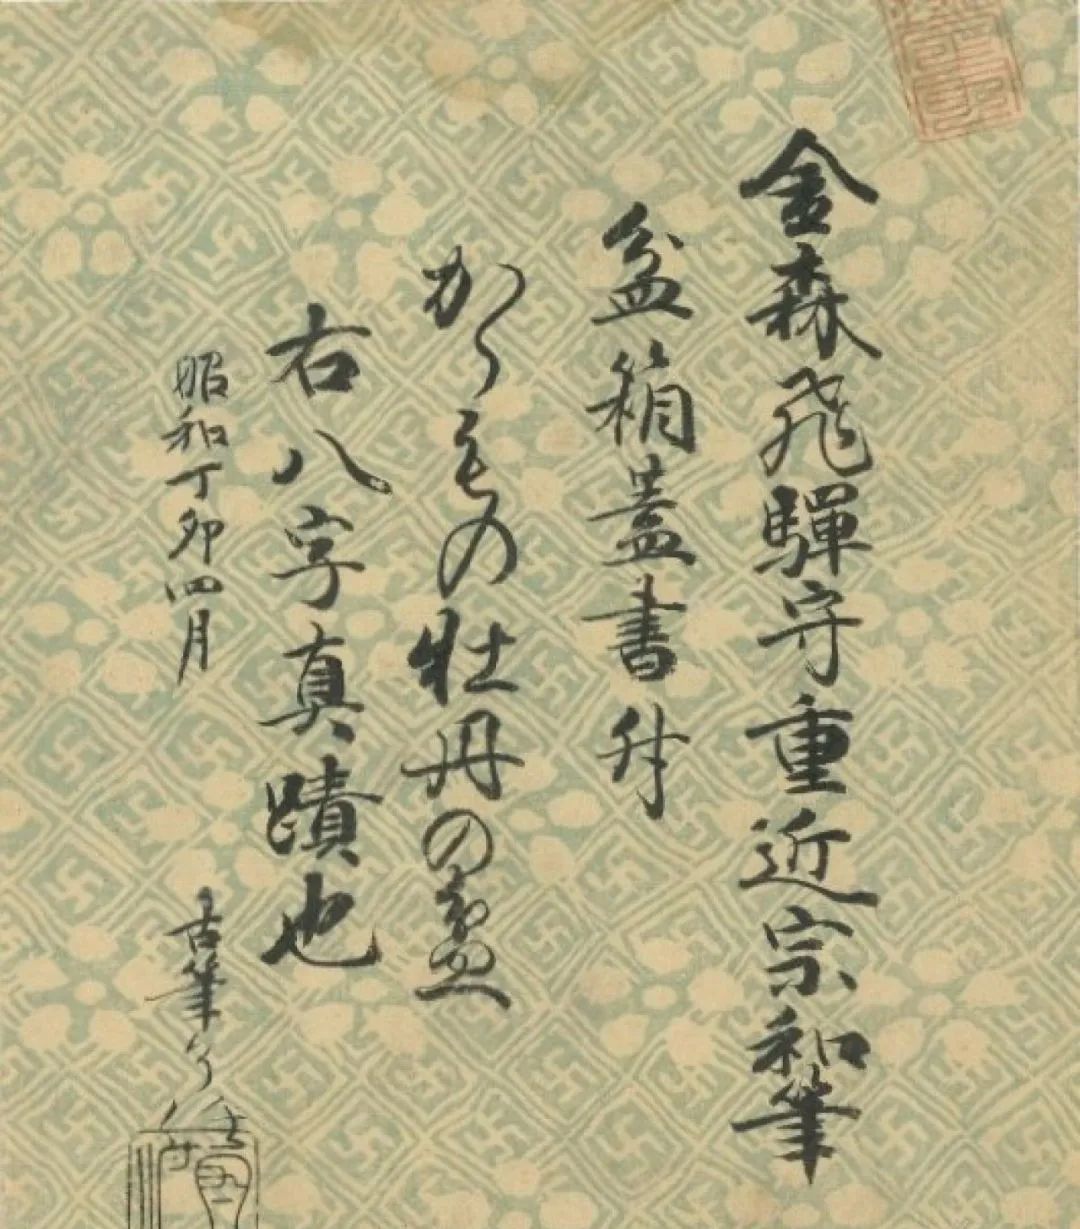 金森飛驒守重近宗和筆
盆箱蓋書付
からもの牡丹の盆
右八字真蹟也
昭和丁卯四月
古筆了